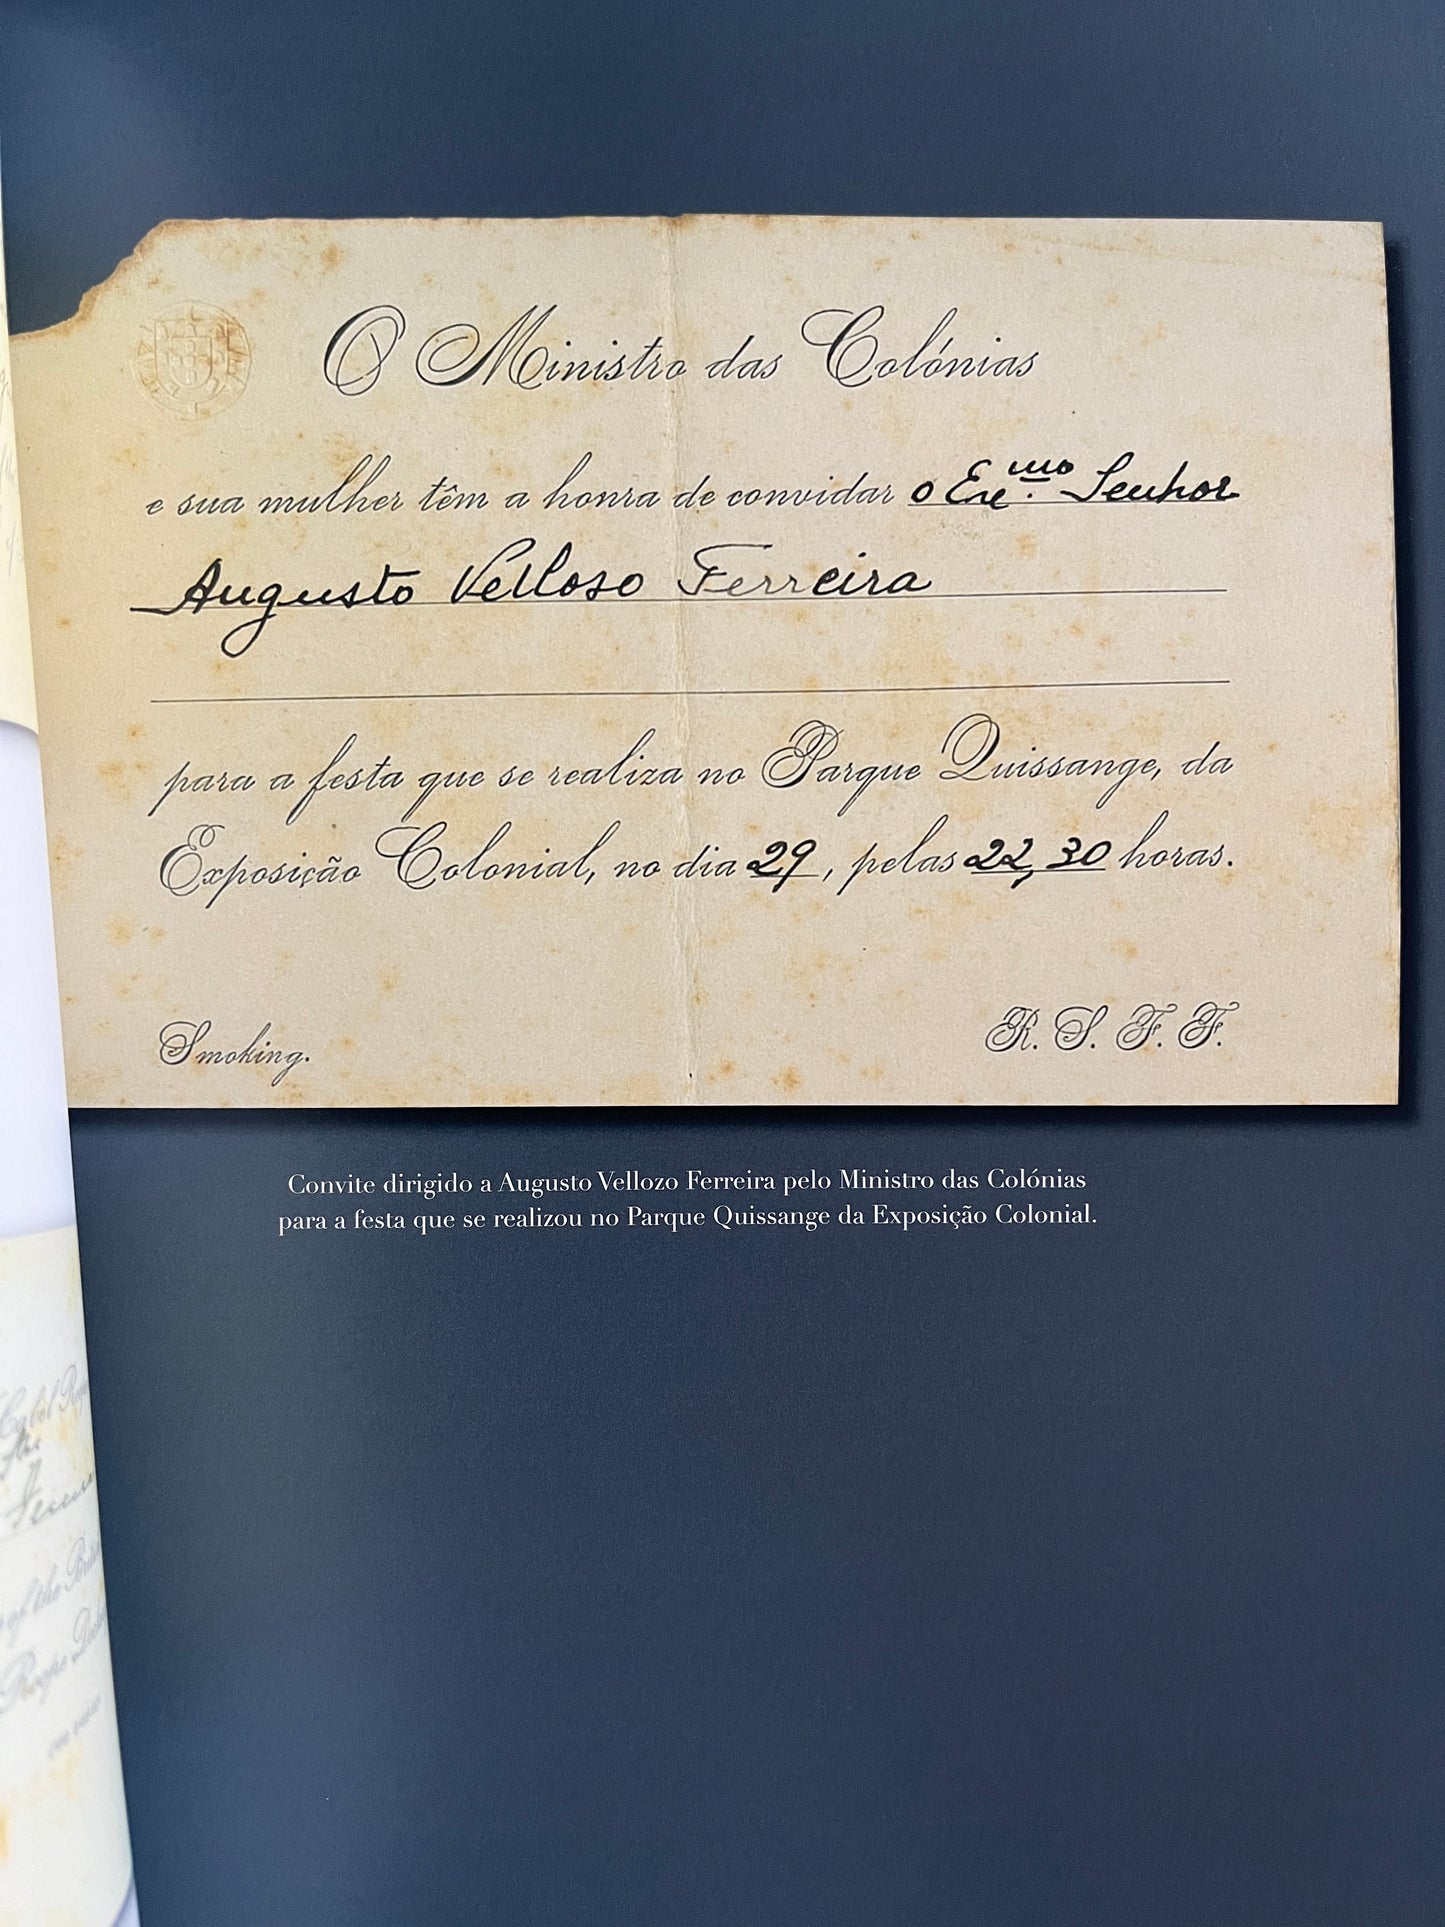 O Ministro das Colónias
e sua mulher têm a honra de convidar o Exmo. Senhor
Augusto Velloso Ferreira
para a festa que se realiza no Parque Quissange, da
Exposição Colonial, no dia 29, pelas 22,30 horas.
Smoking.
R. S. F. F.
Convite dirigido a Augusto Vellozo Ferreira pelo Ministro das Colónias
para a festa que se realizou no Parque Quissange da Exposição Colonial.
of the